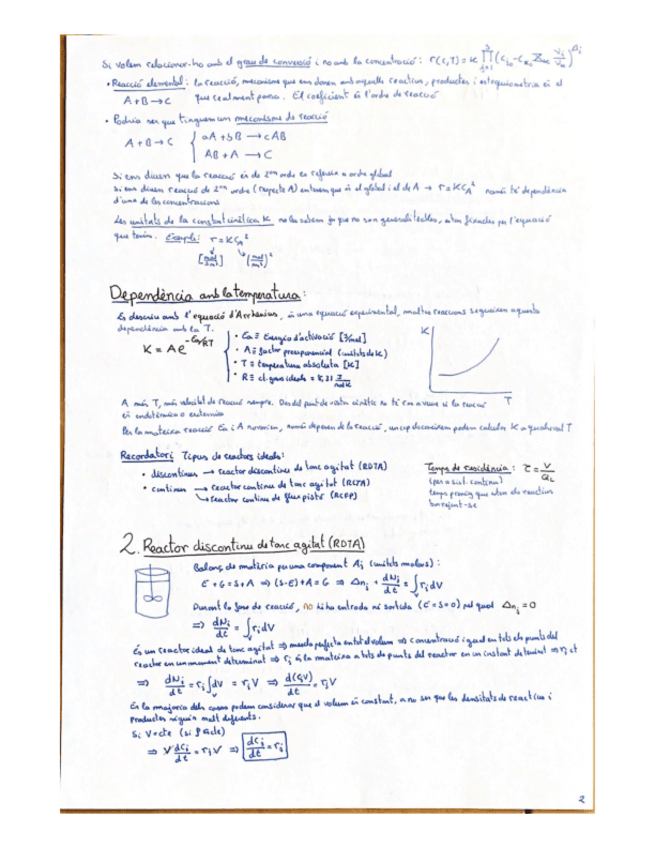 Si volem relacionar-ho amb el grau de conversió i no amb la concentració: r(c,T) = k
• Reacció elemental: la reacció, mecanisme que ens donen amb aquells reactius, productes i estequiometria és el
A+B→C que realment passa. El coeficient és l'ordre de reacció
• Podria ser que tinguem un mecanisme de reacció
A+B→C { aA+bB → cAB
AB+A → C
Si ens diuen que la reacció és de 2on ordre es refereix a ordre global
Si ens diuen reacció de 2on ordre (respecte A) entenem que és el global i el de A → r=kC_A² només té dependència
d'una de les concentracions
Les unitats de la constant cinètica K no les sabem ja que no son generalitzables, estan fixades per l'equació
que tenim. Exemple: r=kC_A²
Dependència amb la temperatura:
Es descriu amb l'equació d'Arrhenius, és una equació experimental, moltes reaccions segueixen aquesta
dependència amb la T.
K = A e^(-Ea/RT)
• Ea ≡ Energia d'activació [J/mol]
• A ≡ factor preexponencial (unitats de K)
• T ≡ temperatura absoluta [K]
• R ≡ ct. gas ideals = 8,31 J/molK
K
T
A més T, més velocitat de reacció sempre. Des del punt de vista cinètic no té res a veure si la reacció
és endotèrmica o exotèrmica
Per la mateixa reacció Ea i A no varien, només depenen de la reacció, un cop els coneixem podem calcular K a qualsevol T
Recordatori: Tipus de reactors ideals:
• discontinus → reactor discontinu de tanc agitat (RDTA)
• continus → reactor continu de tanc agitat (RCTA)
↳ reactor continu de flux pistó (RCFP)
Temps de residència: τ = V/Q_L
(per a sist. continu)
temps promig que estan els reactius
barrejant-se
2. Reactor discontinu de tanc agitat (RDTA)
Balanç de matèria per un component Aj (unitats molars):
E+G=S+A ⇒ (S-E)+A=G ⇒ Δnj + dNj/dt = ∫_V rj dV
Durant la fase de reacció, no hi ha entrada ni sortida (E=S=0) pel qual Δnj=0
⇒ dNj/dt = ∫_V rj dV
És un reactor ideal de tanc agitat ⇒ mescla perfecta en tot el volum ⇒ concentració igual en tots els punts del
reactor en un moment determinat ⇒ rj és la mateixa a tots els punts del reactor en un instant determinat ⇒ rj ct
⇒ dNj/dt = rj ∫_V dV = rj V ⇒ d(CjV)/dt = rj V
En la majoria dels casos podem considerar que el volum és constant, a no ser que les densitats de reactius i
productes siguin molt diferents.
Si V=cte (si ρ=cte)
⇒ V dCj/dt = rj V ⇒ dCj/dt = rj
2